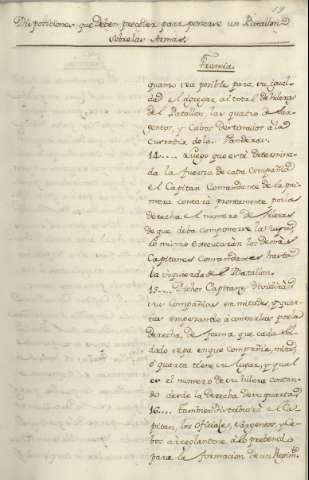 19
Disposiciones que deben preceder para ponerse un Batallon
sobre las Armas.
Francia
quanto sea posible para su igual
dad el agregar al total de hileras
del Batallon, las quatro de Sar
gentos, y Cabos destinados a la
custodia de la Vandera.
14.... Luego que esté determina
da la fuerza de cada Compañia
el Capitan Comandante de la pri
mera contará prontamente por la
derecha el numero de hileras
de que deba componerse la suya,
lo mismo executarán los demas
Capitanes Comandantes hasta
la izquierda del Batallon.
15... Dichos Capitanes dividirán
sus Compañias en mitades, y quar
tas empezando á contarlas por la
derecha, de forma que cada sol
dado sepa en que compañia, mitad,
ó quarta tiene su lugar, y qual
es el numero de su hilera contan
do desde la derecha de su quarta.
16.... tambien distribuirá el Ca
pitan, los oficiales, sargentos, y Ca
bos arreglandose á lo prevenido
para la formacion de un Regim.